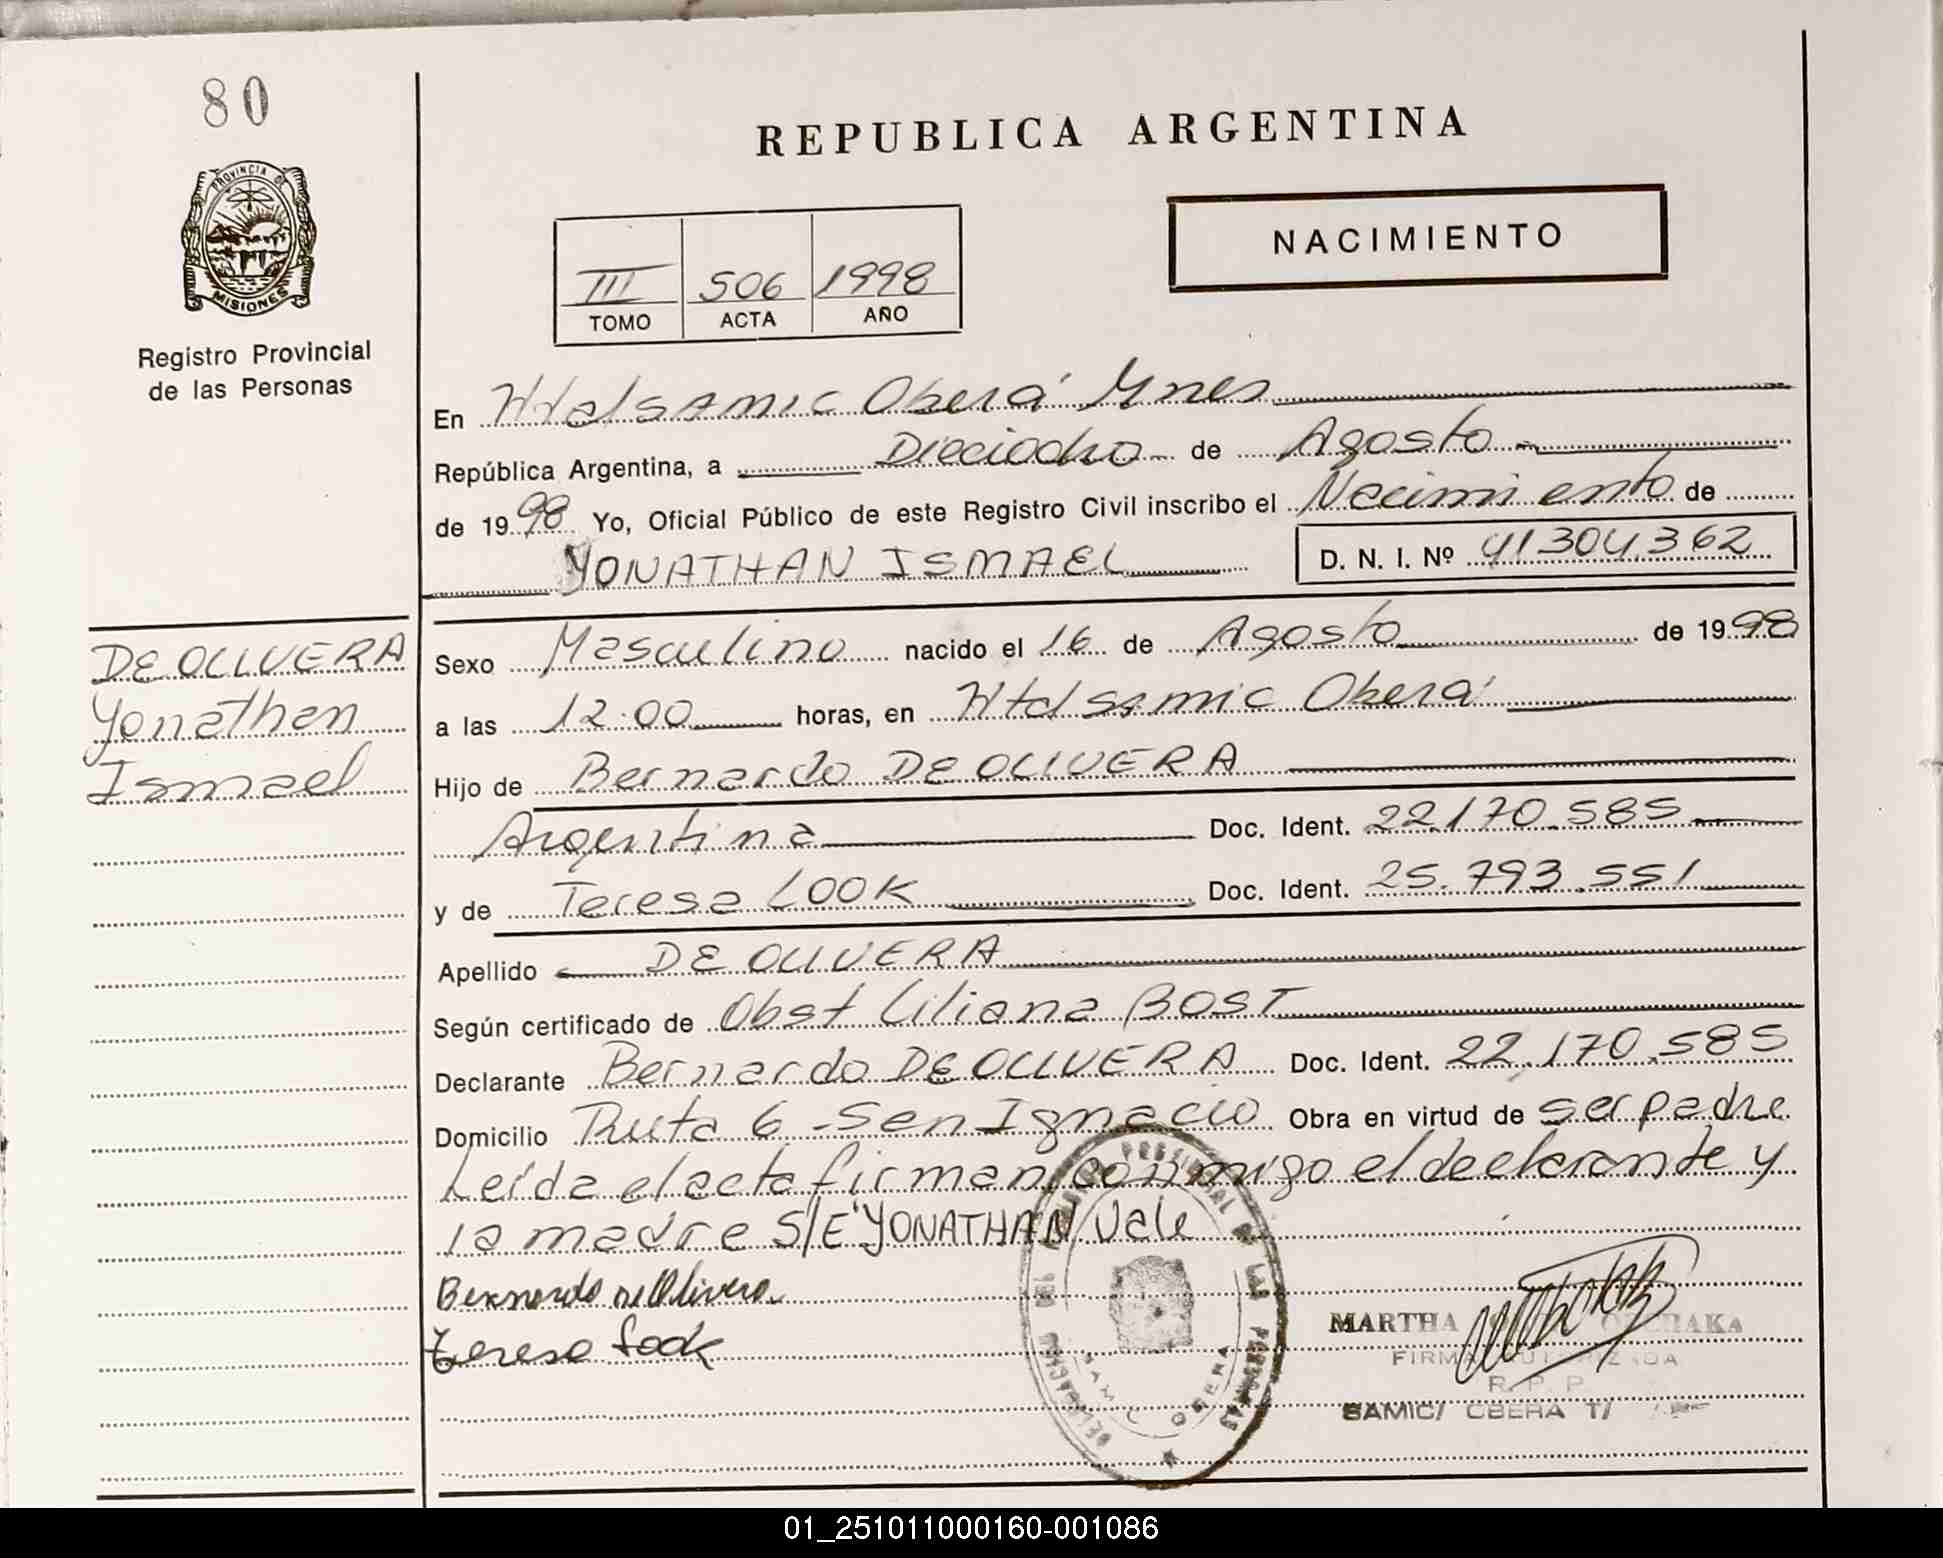 80
REPUBLICA ARGENTINA
PROVINCIA DE
MISIONES
Registro Provincial
de las Personas
NACIMIENTO
III 506 1998
TOMO ACTA AÑO
En Htal samic Oberá Mnes
República Argentina, a Dieciocho de Agosto
de 1998 Yo, Oficial Público de este Registro Civil inscribo el Nacimiento de
YONATHAN ISMAEL D. N. I. Nº 41304.362
DE OLIVERA
Yonathan
Ismael
Sexo Masculino nacido el 16 de Agosto de 1998
a las 12.00 horas, en Htal samic Oberá
Hijo de Bernardo DE OLIVERA
Argentina Doc. Ident. 22.170.585
y de Teresa LOOK Doc. Ident. 25.793.551
Apellido DE OLIVERA
Según certificado de Obst Liliana BOST
Declarante Bernardo DE OLIVERA Doc. Ident. 22.170.585
Domicilio Ruta 6 - San Ignacio Obra en virtud de ser padre
Leída el acta firman conmigo el declarante y
la madre S/E "YONATHAN" Vale
Bernardo de Olivera
Teresa Look
PROVINCIAL DE LAS PERSONAS
SAMIC OBERA
MARTHA
FIRMA AUTORIZADA
R. P. P.
SAMIC/ OBERA T/
01_251011000160-001086